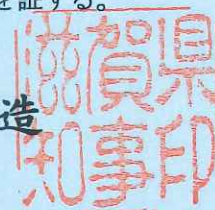 を証する。
造
滋賀県
知事印